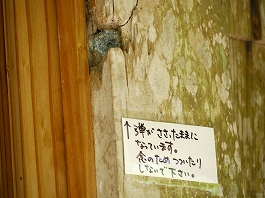 ↑弾がささったままに
なっています。
念のためつついたり
しないで下さい。